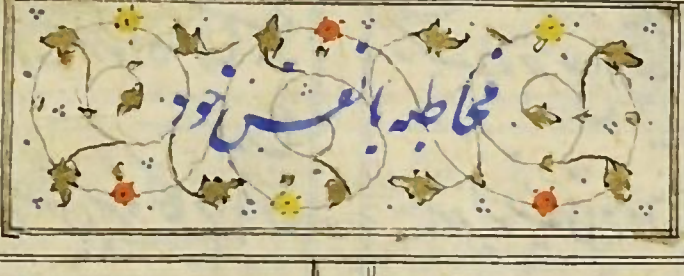 مخاطبه با نفس خود